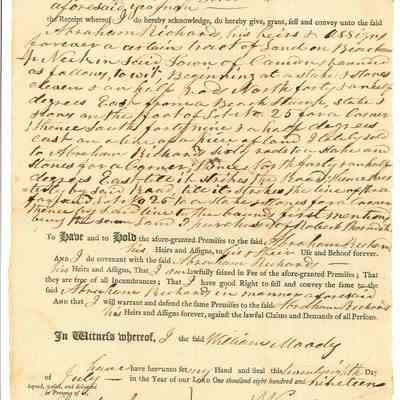 aforesaid yeoman
the Receipt whereof I do hereby acknowledge, do hereby give, grant, sell and convey unto the said
Abraham Richard, his heirs & assigns
forever a certain tract of land on Beauchamp
Neck in said Town of Camden, bounded
as follows, to wit. Beginning at a stake & stones
eleven & an half rod North forty & an half
degrees East from a Beach Stump, stake &
stones on the foot of Lot No 25 for a Corner
thence South forty nine & a half degrees
east on a line of a piece of land I lately sold
to Abraham Richard sixty rods to a stake and
stones for a Corner, thence North forty & an half
degrees East till it strikes the Road thence
by said Road, till it strikes the line of the
Lot No 25 to a stake & stones for a Corner
thence by said line to the bounds first mention
being the same land I purchased of Robert Thorndike
To Have and to Hold the afore-granted Premises to the said Abraham Richards
his Heirs and Assigns, to his & their Use and Behoof forever.
AND I do covenant with the said Abraham Richards
his Heirs and Assigns, That I am lawfully seized in Fee of the afore-granted Premises; That
they are free of all Incumbrances; That I have good Right to sell and convey the same to the
said Abraham Richards in manner aforesaid
And that I will warrant and defend the same Premises to the said Abraham Richards
his Heirs and Assigns forever, against the lawful Claims and Demands of all Persons.
In Witness whereof, I the said William Moody
have hereunto set my Hand and Seal this twenty sixth Day
of July in the Year of our LORD One thousand eight hundred and nineteen
Signed, sealed, and delivered
in Presence of us,